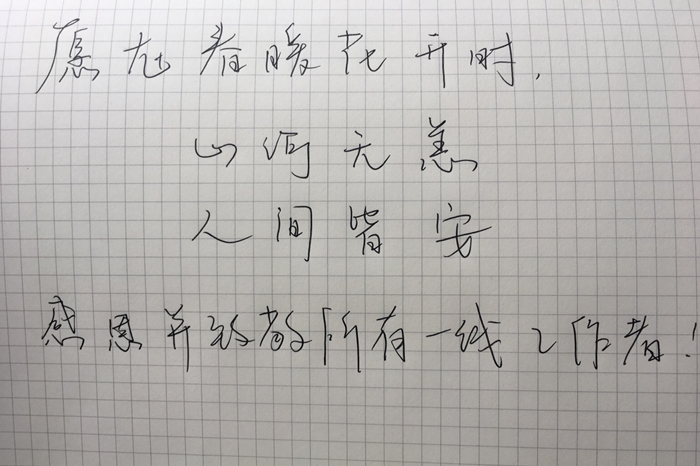 愿在春暖花开时,
山河无恙
人间皆安
感恩并致敬所有一线工作者!